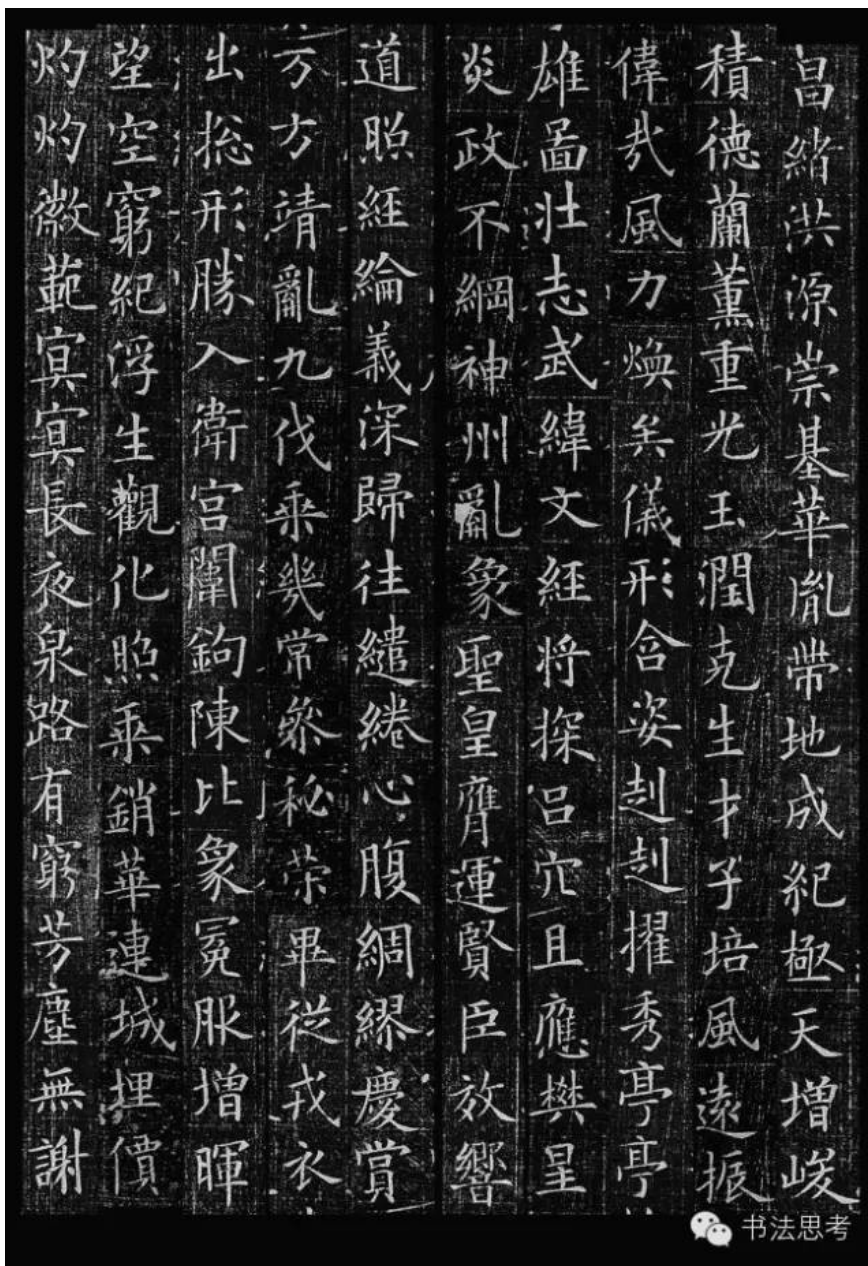 昌緒洪源崇基華胤帶地成紀極天增峻
積德蘭薰重光玉潤克生才子培風遠振
偉哉風力煥矣儀形含姿赳赳擢秀亭亭
雄圖壯志武緯文經將探呂穴且應樊星
炎政不綱神州亂象聖皇膺運賢臣效響
道照經綸義深歸往繾綣心腹綢繆慶賞
万方靖亂九伐乘幾常參秘策畢從戎衣
出揔形勝入衛宮闈鉤陳比象冕服增暉
望空窮紀浮生觀化照乘銷華連城埋價
灼灼徽範寘寘長夜泉路有窮芳塵無謝
书法思考